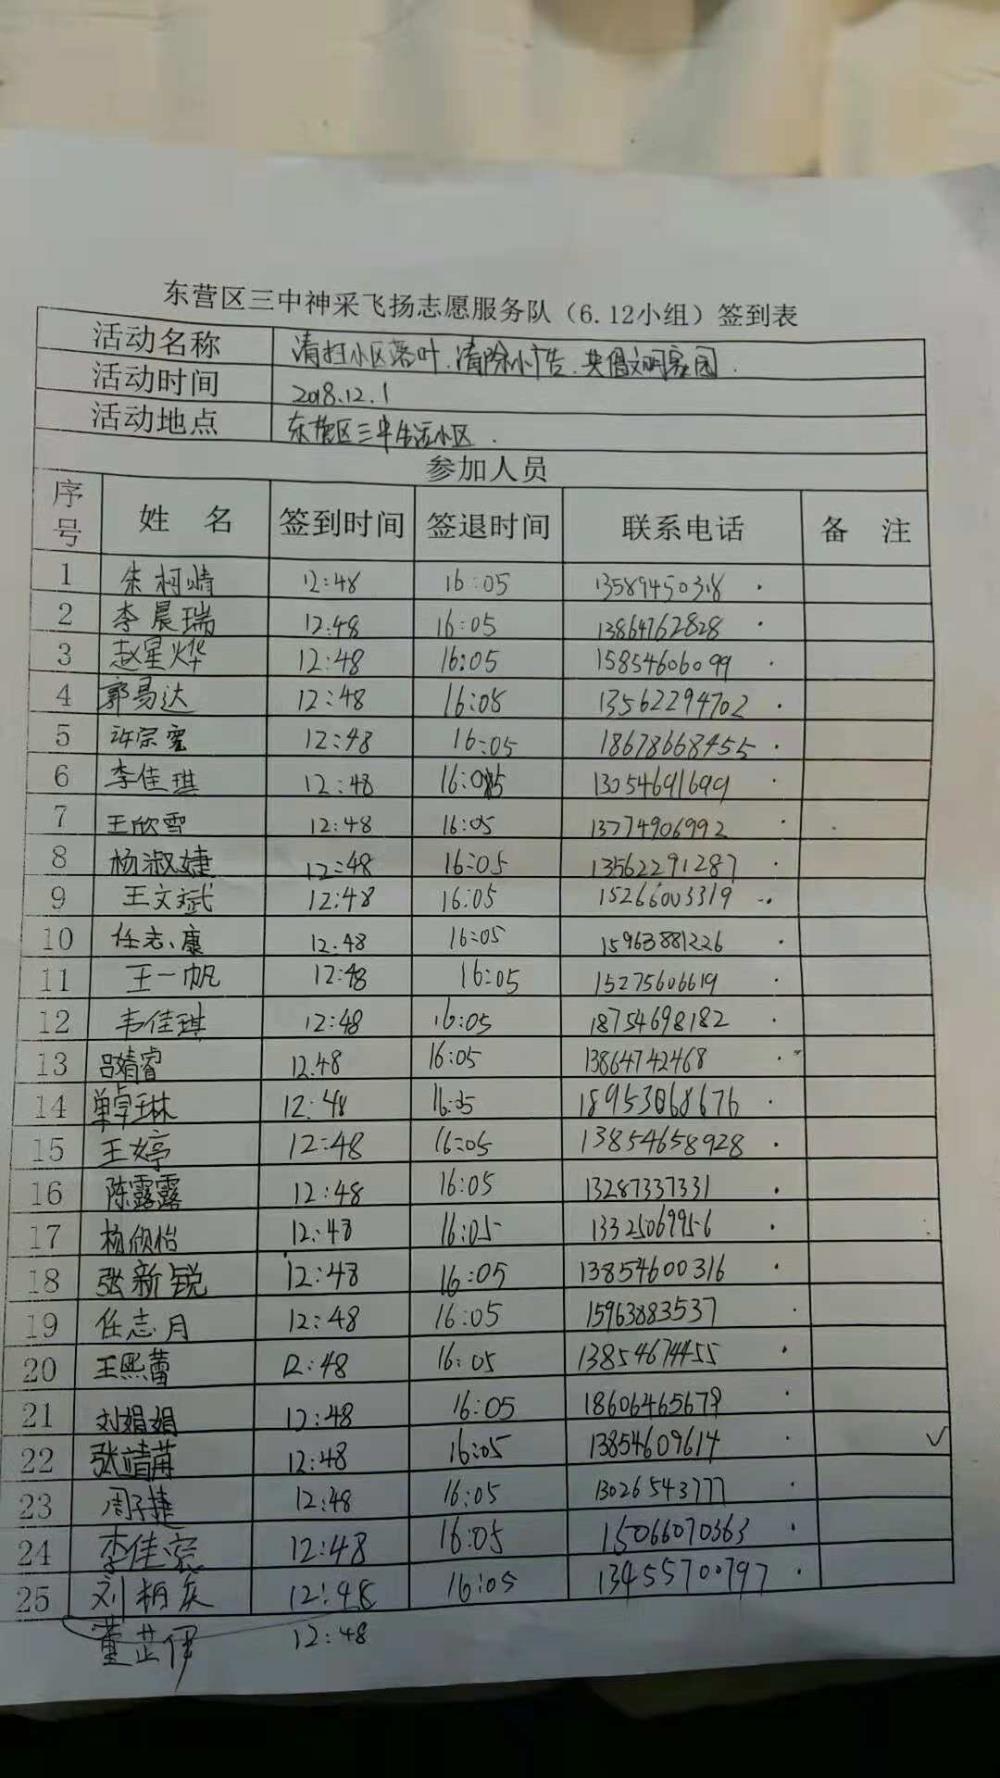 东营区三中神采飞扬志愿服务队（6.12小组）签到表
活动名称 清扫小区落叶.清除小广告.共倡文明家园.
活动时间 2018.12.1
活动地点 东营区三中生活小区.
参加人员
序号 姓 名 签到时间 签退时间 联系电话 备 注
1 朱柯 12:48 16:05 13589450318
2 李晨瑞 12:48 16:05 13864762828
3 赵星烨 12:48 16:05 15854606099
4 郭易达 12:48 16:05 13562294702
5 许宗 12:48 16:05 18678668455
6 李佳琪 12:48 16:05 13054691699
7 王欣雪 12:48 16:05 13774906992
8 杨淑婕 12:48 16:05 13562291287
9 王文斌 12:48 16:05 15266003319
10 任志康 12:48 16:05 15963881226
11 王一帆 12:48 16:05 15275606619
12 韦佳琪 12:48 16:05 18754698182
13 吕婧睿 12.48 16:05 13864742468
14 单卓琳 12:48 16:05 18953068676
15 王婷 12:48 16:05 13854658928
16 陈露露 12:48 16:05 13287337331
17 杨欣怡 12:48 16:05 13325069956
18 张新锐 12:48 16:05 13854600316
19 任志月 12:48 16:05 15963883537
20 王熙蕾 12:48 16:05 13854674455
21 刘娟娟 12:48 16:05 18606465679
22 张靖苒 12:48 16:05 13854609614 √
23 周子捷 12:48 16:05 13026543777
24 李佳 12:48 16:05 15066070363
25 刘柄 12:48 16:05 13455700797
董芷伊 12:48